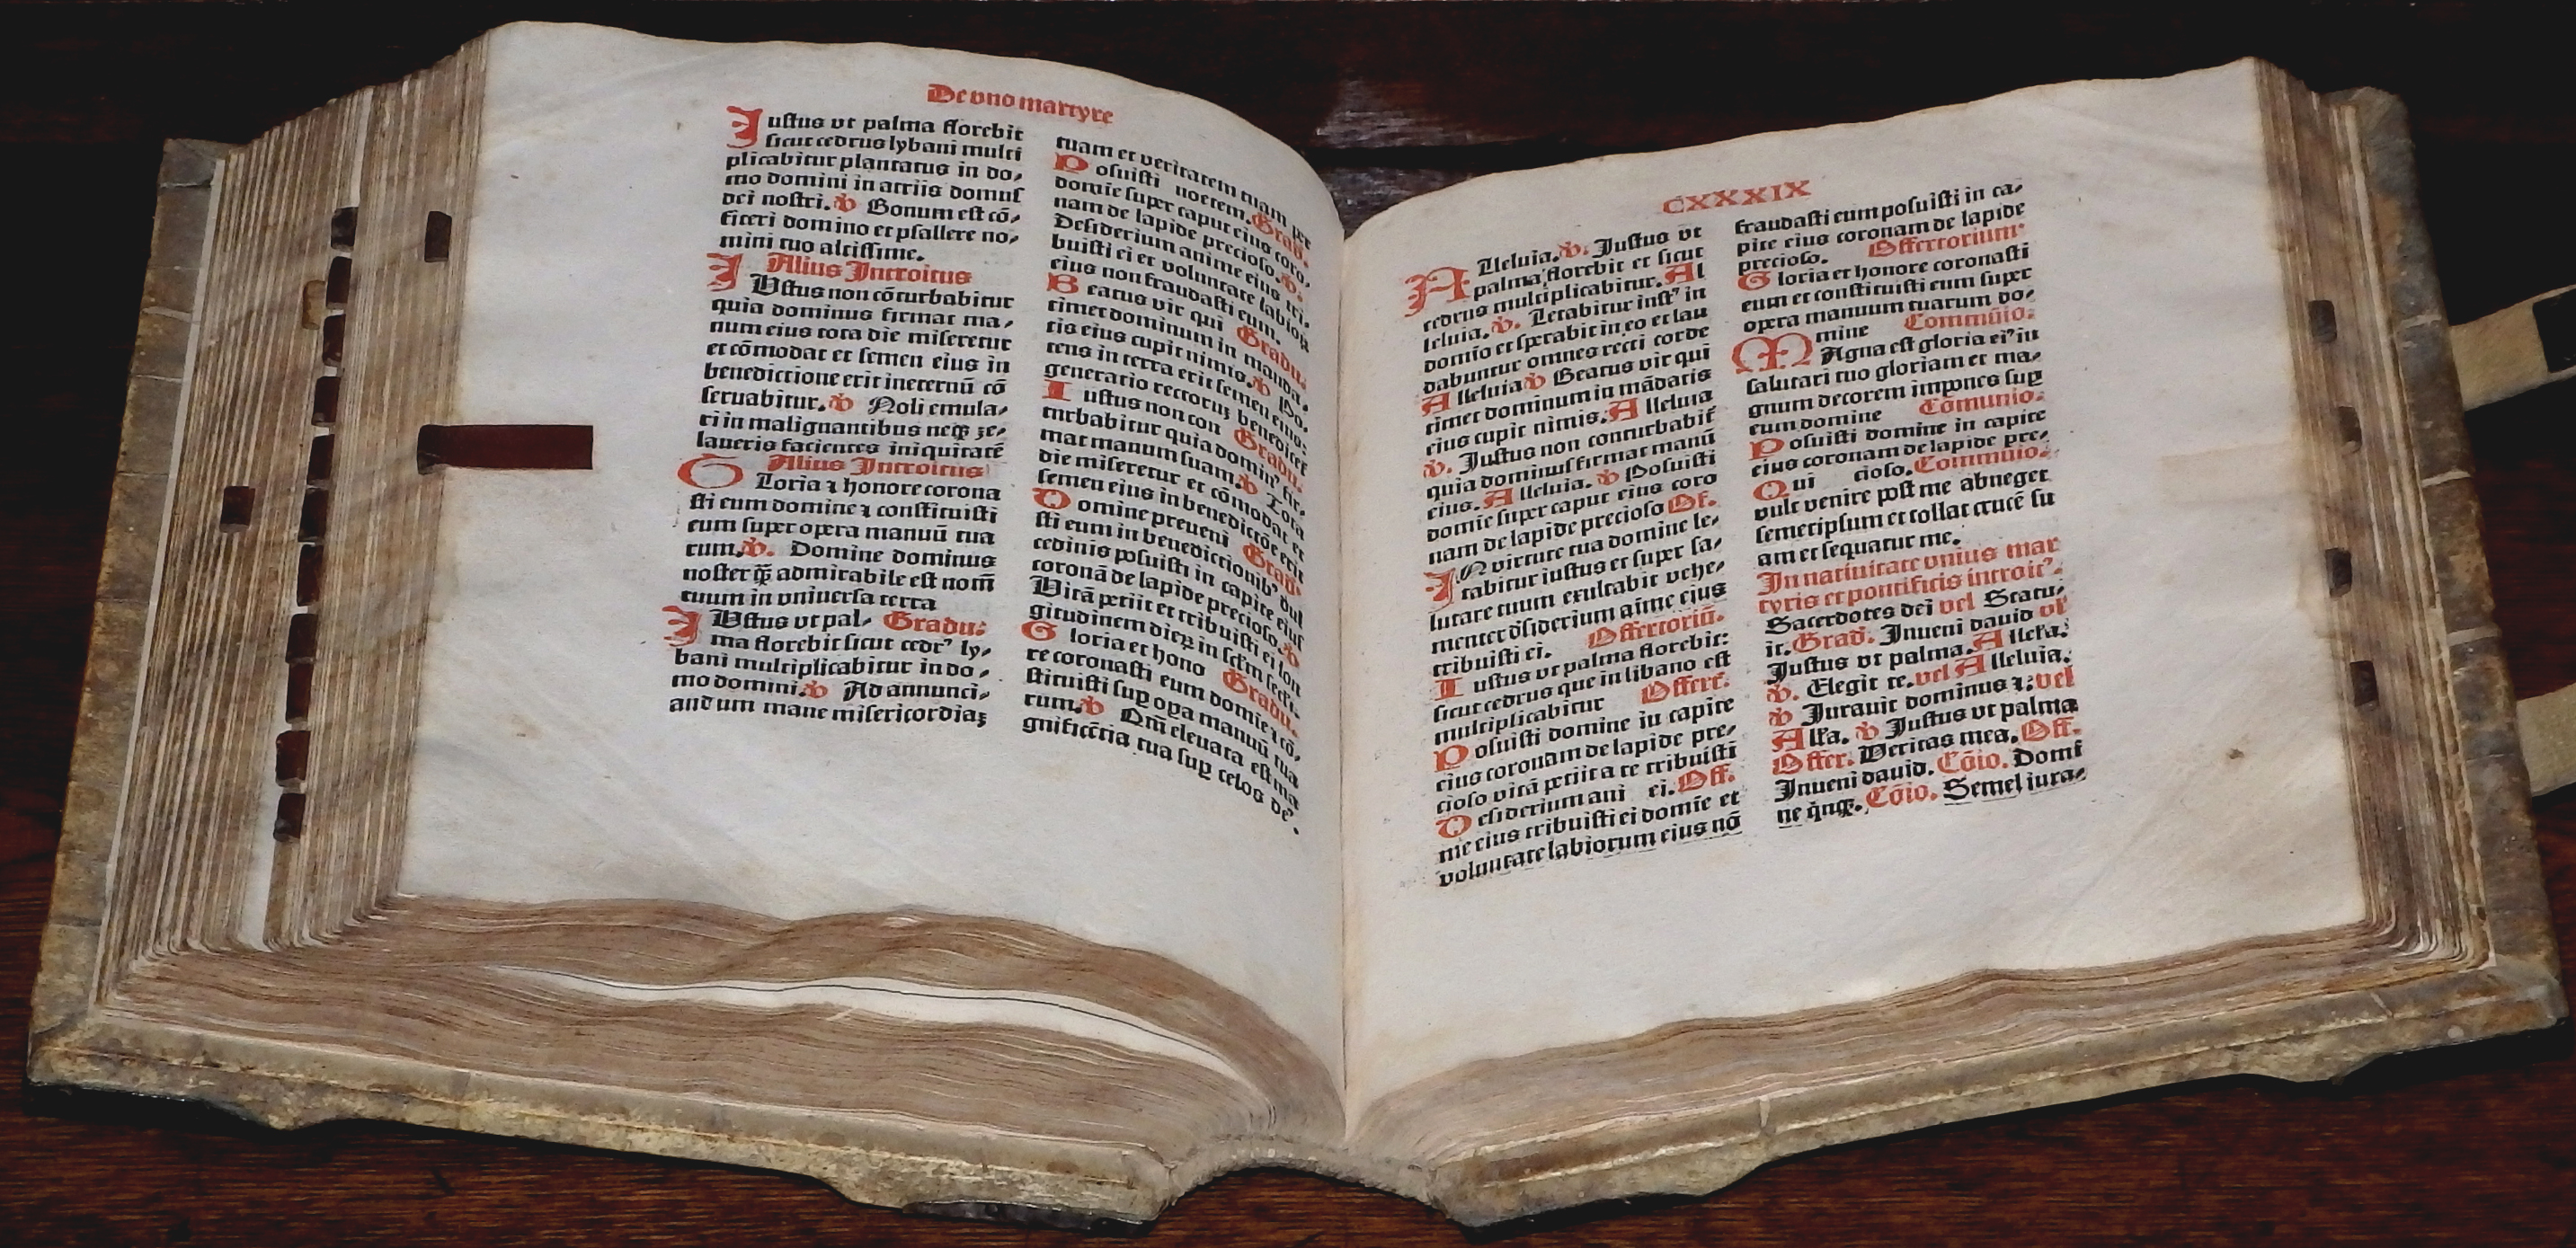 De vno martyre
Iustus vt palma florebit
sicut cedrus lybani multi
plicabitur plantatus in do,
mo domini in atriis domus
dei nostri. ℣ Bonum est cō,
fiteri domino et psallere no,
mini tuo altissime.
Alius Introitus
IVstus non cōturbabitur
quia dominus firmat ma,
num eius tota die miseretur
et cōmodat et semen eius in
benedictione erit ineternū cō
seruabitur. ℣ Noli emula,
ri in malignantibus neqꝫ ze,
laueris facientes iniquitatē
Alius Introitus
GLoria ⁊ honore corona
sti eum domine ⁊ constituisti
eum super opera manuū tua
rum. ℣. Domine dominus
noster q̄ȝ admirabile est nom̄
tuum in vniuersa terra
IVstus vt pal, Gradu:
ma florebit sicut cedrꝰ ly,
bani multiplicabitur in do,
mo domini. ℣ Ad annunci,
andum mane misericordiaȝ
tuam et veritatem tuam per
Posuisti noctem. Grad.
domie super caput eius coro,
nam de lapide precioso. ℣.
Desiderium anime eius tri,
buisti ei et voluntate labioꝝ
eius non fraudasti eum.
Beatus vir qui Gradu.
timet dominum in manda,
tis eius cupit nimis. ℣ Po,
tens in terra erit semen eius:
generatio rectoruȝ benedicet
Iustus non con Gradu.
turbabitur quia dominꝰ fir,
mat manum suam. ℣ Tota
die miseretur et cōmodat et
semen eius in benedictōe erit
Domine preueni Grad.
sti eum in benedictionibꝰ dul
cedinis posuisti in capite eius
coronā de lapide precioso. ℣
Vitā petiit et tribuisti ei lon
gitudinem dieꝝ in sclm̄ secli.
Gloria et hono Gradu.
re coronasti eum domie ⁊ cō,
stituisti suꝑ oꝑa manuū tua
rum. ℣ Qm̄ eleuata est ma
gnificētia tua suꝑ celos deꝰ.
CXXXIX
ALleluia. ℣. Iustus vt
palma florebit et sicut
cedrus multiplicabitur. Al
leluia. ℣. Letabitur iustꝰ in
domio et sperabit in eo et lau
dabuntur omnes recti corde
Alleluia ℣ Beatus vir qui
timet dominum in mādatis
eius cupit nimis. Alleluia
℣. Iustus non conturbabit̄
quia dominus firmat manū
eius. Alleluia. ℣ Posuisti
domie super caput eius coro
nam de lapide precioso Of.
IN virtute tua domine le,
tabitur iustus et super sa,
lutare tuum exultabit vehe,
menter dsiderium aīme eius
tribuisti ei. Offertoriū.
Iustus vt palma florebit:
sicut cedrus que in libano est
multiplicabitur Offert.
Posuisti domine in capite
eius coronam de lapide pre,
cioso vitā petiit a te tribuisti
Desiderium ani ei. Off.
me eius tribuisti ei domie et
voluntate labiorum eius nō
fraudasti eum posuisti in ca,
pite eius coronam de lapide
precioso. Offertorium
Gloria et honore coronasti
eum et constituisti eum super
opera manuum tuarum do,
mine Commūio.
MAgna est gloria eiꝰ in
salutari tuo gloriam et ma,
gnum decorem impones suꝑ
eum domine Cōmunio.
Posuisti domine in capite
eius coronam de lapide pre,
Qui cioso. Commūio.
vult venire post me abneget
semetipsum et tollat crucē su
am et sequatur me.
In natiuitate vnius mar
tyris et pontificis introitꝰ.
Sacerdotes dei vel Statu,
it. Grad. Inueni dauid vl
Iustus vt palma. Allel'a.
℣. Elegit te. vel Alleluia.
℣ Iurauit dominus ⁊: vel
All'a. ℣ Iustus vt palma
Offer. Veritas mea. Off.
Inueni dauid. Cōio. Domi
ne q̇nqꝫ. Cōio. Semel iura,